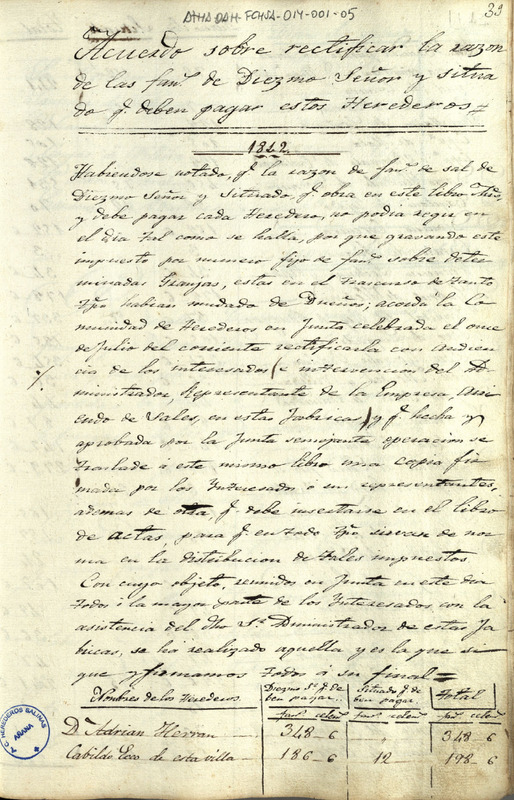 AHHA DAH-FCHSA-014-001-05
39
Acuerdo sobre rectificar la razon
de las fan.s de Diezmo Señor y situa
do q.e deben pagar estos Herederos=
1842
Habiendose notado, q.e la razon de fan.s de sal, de
Diezmo Señor y Situado, q.e obra en este libro
y debe pagar cada Heredero, no podia regir en
el dia tal como se halla, por que gravando este
impuesto por numero fijo de fan.s sobre deter
minadas Granjas, estas en el trascurso de tanto
tpo habian mudado de Dueños; acordó la Co
munidad de Herederos en Junta celebrada el once
de Julio del corriente rectificarla con audien
cia de los interesados (e intervencion del Ad
ministrador, Representante de la Empresa, Arri
endo de Sales, en estas fabricas) y q.e hecha y
aprobada por la Junta semejante operacion se
traslade á este mismo libro una copia fir
mada por los Interesados ó sus representantes,
ademas de otra q.e debe insertarse en el libro
de actas, para q.e en todo tpo sirvan de nor
ma en la distribucion de tales impuestos
Con cuyo objeto, reunidos en Junta en este dia
todos ó la mayor parte de los Interesados con la
asistencia del dho S.r Administrador de estas fa
bricas, se ha realizado aquella y es la que si
gue y firmamos todos á su final=
Nombres de los Herederos Diezmo S.r q.e de ben pagar. Situado q.e de ben pagar. Total
fan.s celem.s fan.s celem.s fan.s celem.s
D.n Adrian Herran 348 6 " 348 6
Cabildo Ecco de esta villa 186 6 12 198 6
C. HEREDEROS SALINAS
AÑANA